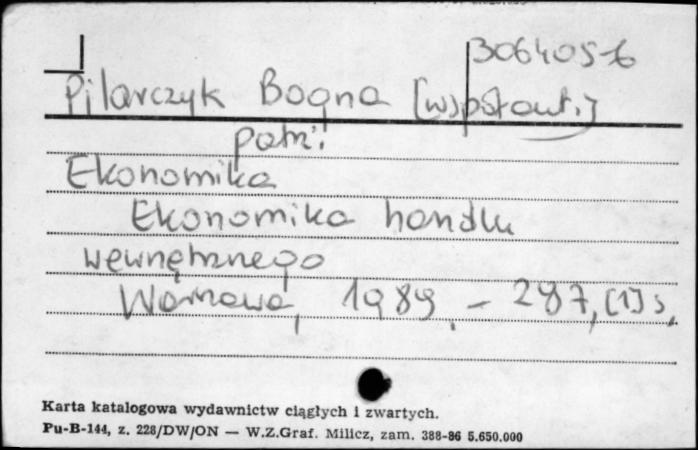 3064051b
Pilarczyk Bogna [współaut.]
patrz:
Ekonomika
Ekonomika handlu
wewnętrznego
Warszawa, 1989. - 287, [1] s,
Karta katalogowa wydawnictw ciągłych i zwartych.
Pu-B-144, z. 228/DW/ON — W.Z.Graf. Milicz, zam. 388-86 5.650.000